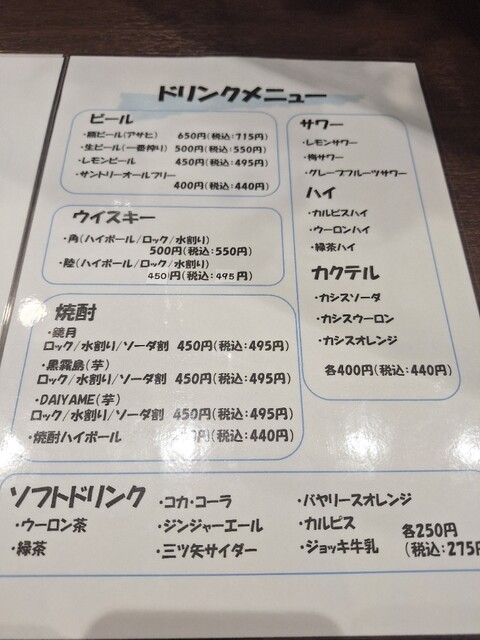 ドリンクメニュー
ビール
・瓶ビール(アサヒ) 650円(税込:715円)
・生ビール(一番搾り) 500円(税込:550円)
・レモンビール 450円(税込:495円)
・サントリーオールフリー
400円(税込:440円)
ウイスキー
・角(ハイボール/ロック/水割り)
500円(税込:550円)
・陸(ハイボール/ロック/水割り)
450円(税込:495円)
焼酎
・鏡月
ロック/水割り/ソーダ割 450円(税込:495円)
・黒霧島(芋)
ロック/水割り/ソーダ割 450円(税込:495円)
・DAIYAME(芋)
ロック/水割り/ソーダ割 450円(税込:495円)
・焼酎ハイボール 円(税込:440円)
サワー
・レモンサワー
・梅サワー
・グレープフルーツサワー
ハイ
・カルピスハイ
・ウーロンハイ
・緑茶ハイ
カクテル
・カシスソーダ
・カシスウーロン
・カシスオレンジ
各400円(税込:440円)
ソフトドリンク
・ウーロン茶
・緑茶
・コカ・コーラ
・ジンジャーエール
・三ツ矢サイダー
・バヤリースオレンジ
・カルピス
・ジョッキ牛乳
各250円
(税込:275円